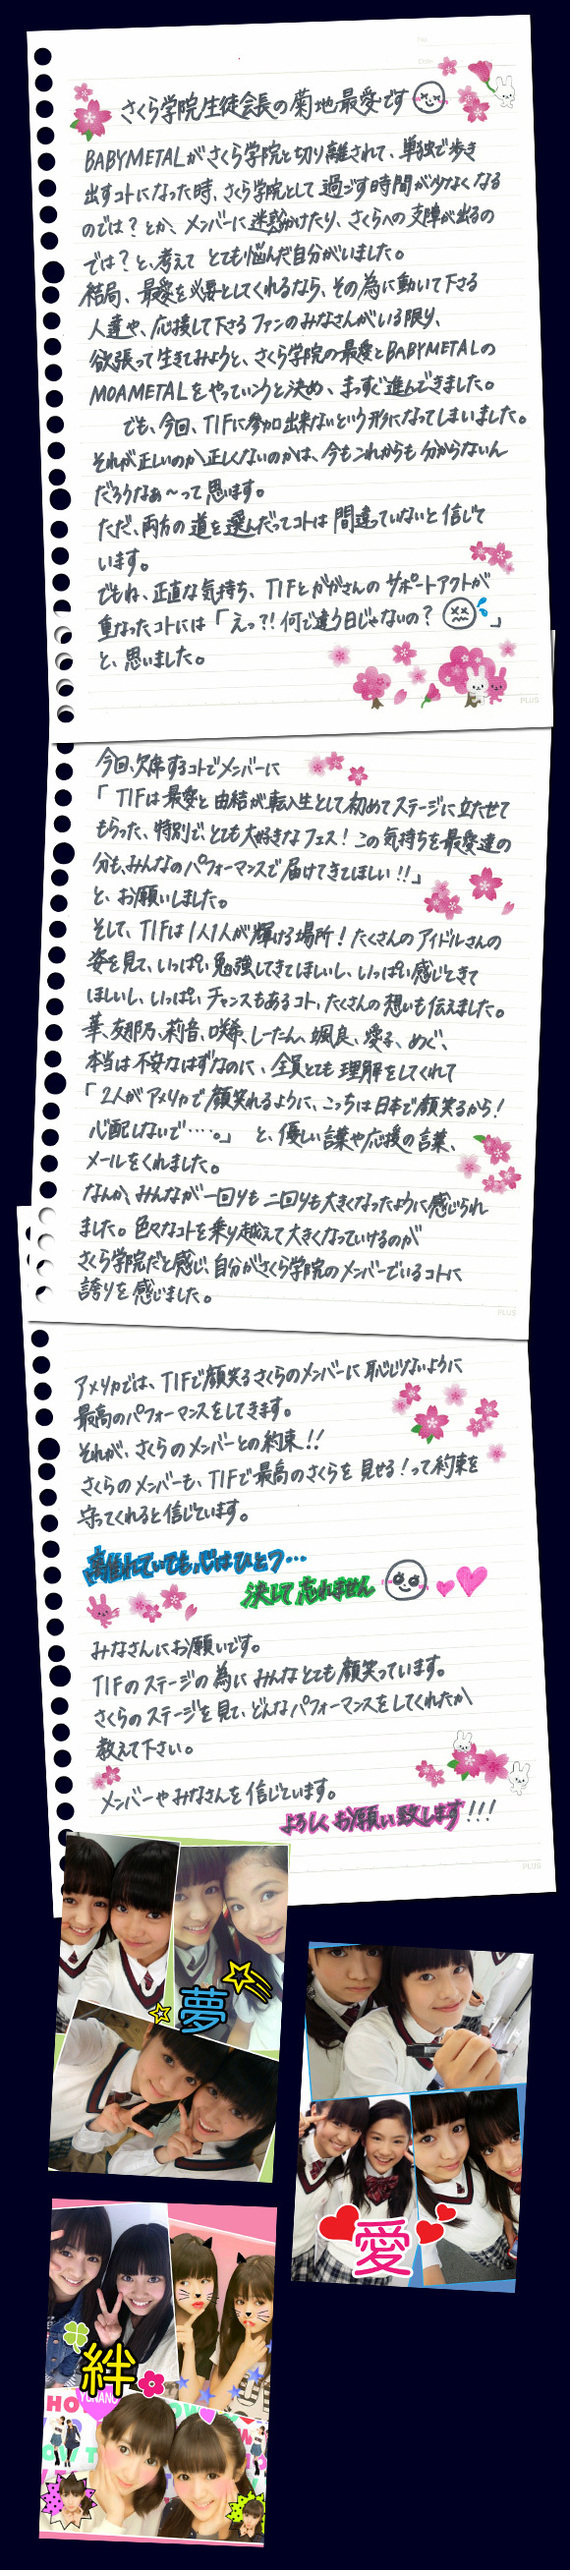 No.
Date
さくら学院生徒会長の菊地最愛です
BABYMETALがさくら学院と切り離されて、単独で歩き
出すコトになった時、さくら学院として過ごす時間が少なくなる
のでは？とか、メンバーに迷惑かけたり、さくらへの支障が出るの
では？と、考えて とても悩んだ自分がいました。
結局、最愛を必要としてくれるなら、その為に動いて下さる
人達や、応援して下さるファンのみなさんがいる限り、
欲張って生きてみようと、さくら学院の最愛とBABYMETALの
MOAMETALをやっていこうと決め、まっすぐ進んできました。
でも、今回、TIFに参加出来ないという形になってしまいました。
それが正しいのか正しくないのかは、今もこれからも分からないん
だろうなぁ〜って思います。
ただ、両方の道を選んだってコトは間違っていないと信じて
います。
でもね、正直な気持ち、TIFとガガさんのサポートアクトが
重なったコトには「えっ？！何で違う日じゃないの？」
と、思いました。
PLUS
今回、欠席するコトでメンバーに
「TIFは最愛と由結が転入生として初めてステージに立たせて
もらった、特別で、とても大好きなフェス！この気持ちを最愛達の
分も、みんなのパフォーマンスで届けてきてほしい！！」
と、お願いしました。
そして、TIFは1人1人が輝ける場所！たくさんのアイドルさんの
姿を見て、いっぱい勉強してきてほしいし、いっぱい感じてきて
ほしいし、いっぱいチャンスもあるコト、たくさんの想いも伝えました。
華、友那乃、莉音、咲希、しーたん、颯良、愛子、めぐ、
本当は不安なはずなのに、全員とても理解をしてくれて
「2人がアメリカで顔笑れるように、こっちは日本で顔笑るから！
心配しないで・・・・。」 と、優しい言葉や応援の言葉、
メールをくれました。
なんか、みんなが一回りも二回りも大きくなったように感じられ
ました。色々なコトを乗り越えて大きくなっていけるのが
さくら学院だと感じ、自分がさくら学院のメンバーでいるコトに
誇りを感じました。
PLUS
アメリカでは、TIFで顔笑るさくらのメンバーに恥じないように
最高のパフォーマンスをしてきます。
それが、さくらのメンバーとの約束！！
さくらのメンバーも、TIFで最高のさくらを見せる！って約束を
守ってくれると信じています。
離れていても心はひとつ・・・
決して忘れません
みなさんにお願いです。
TIFのステージの為にみんなとても顔笑っています。
さくらのステージを見て、どんなパフォーマンスをしてくれたか
教えて下さい。
メンバーやみなさんを信じています。
よろしくお願い致します！！！
PLUS
夢
愛
絆